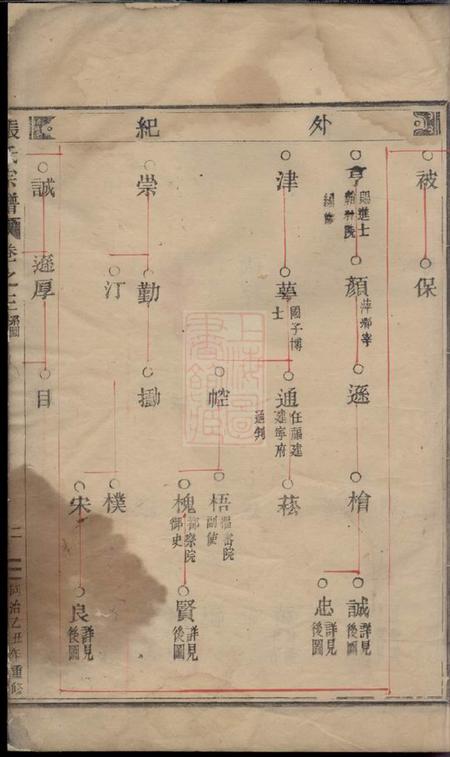 外紀
被
保
亨 賜進士翰林院編修
顏 萍鄉宰
遜
檜
誠 詳見後圖
忠 詳見後圖
津
蕚 國子博士
通 任福建建寧府通判
藝
崆
梧 樞密院副使
槐 都察院御史
賢 詳見後圖
崇
勤
汀
勱
樸
宋
良 詳見後圖
氏宗譜 卷之三
誠
遊厚
目
同治乙丑年重修
上海圖書館藏